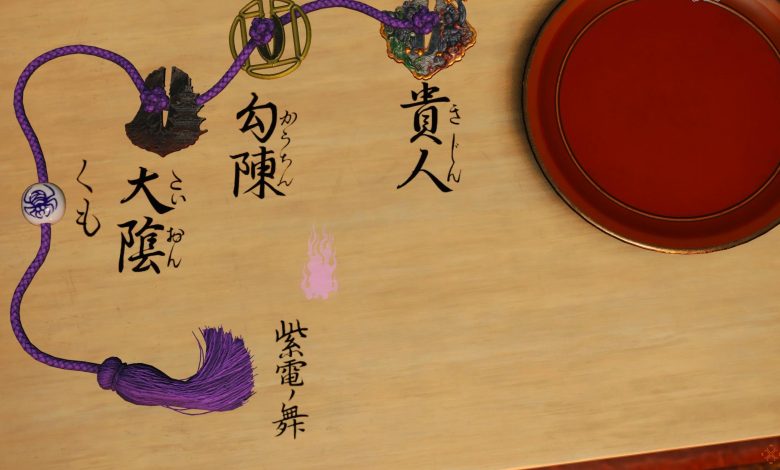 貴人
きじん
勾陳
かうちん
大陰
こいおん
くも
紫電ノ舞